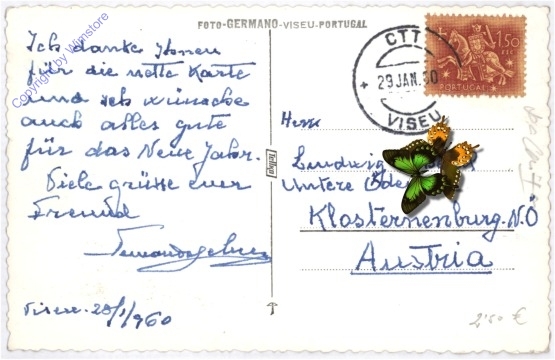 FOTO-GERMANO-VISEU-PORTUGAL
Ich danke Ihnen
für die nette Karte
und ich wünsche
auch alles gute
für das Neue Jahr.
Viele grüsse euer
Freund
Viseu - 28/1/960
Copyright by Wimstore
CTT
29 JAN. 60
VISEU
1$50
PORTUGAL
Herr
Ludwig
Untere
Klosterneuburg. N.Ö
Austria
2'50 €